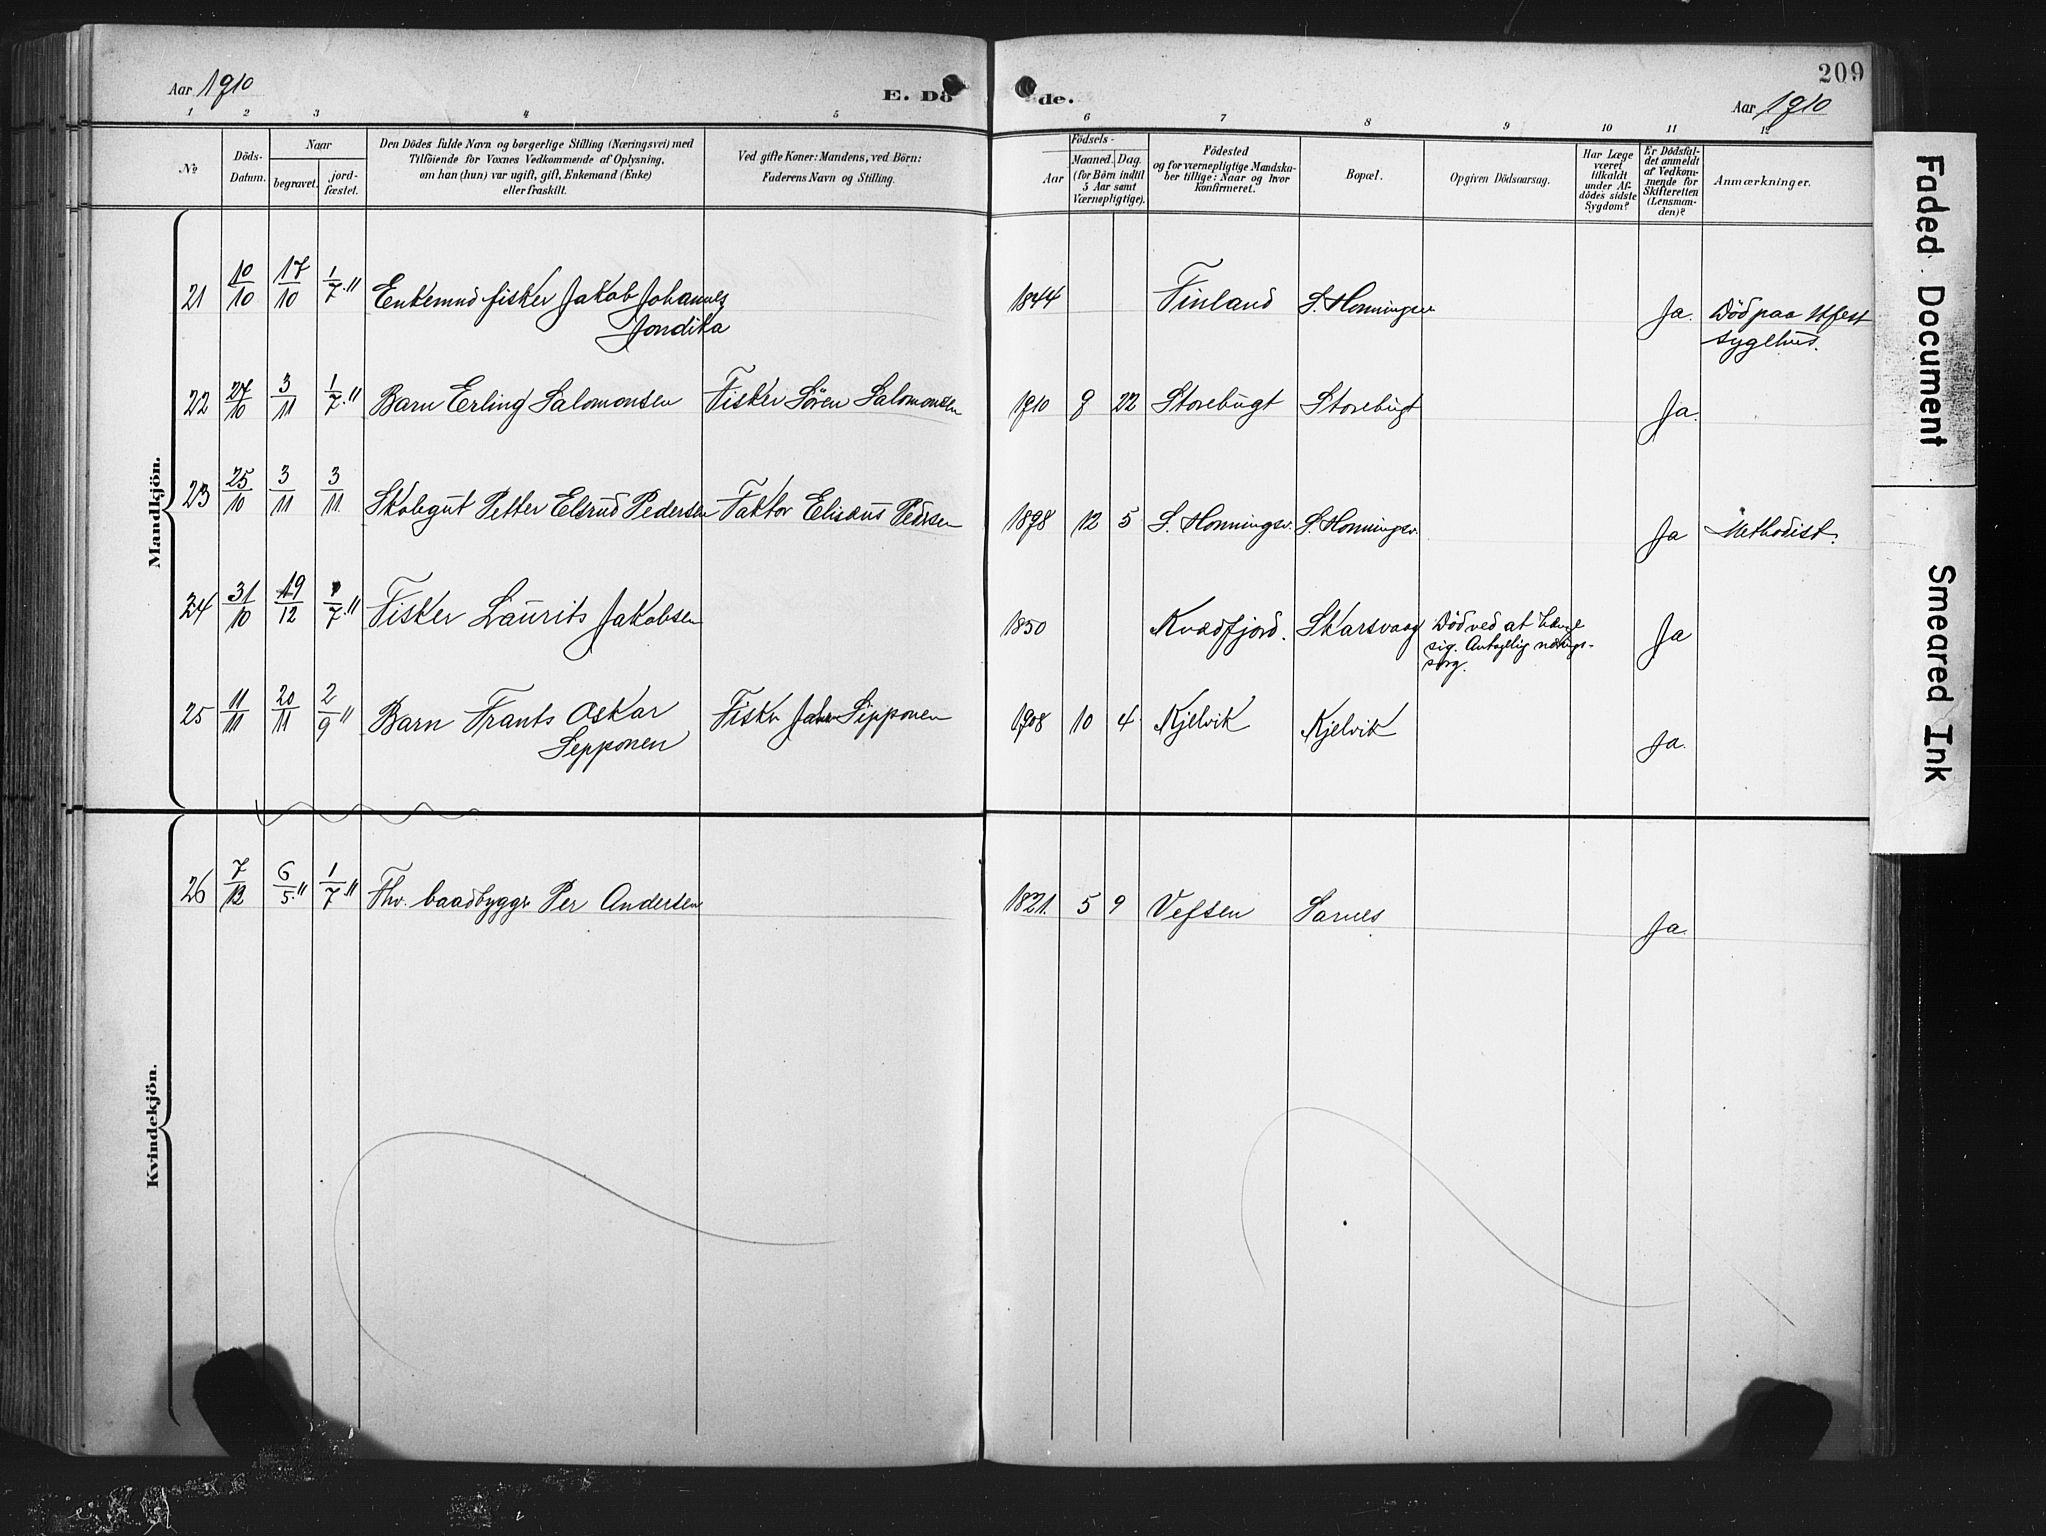 209
Aar 1910
E. Dö
de.
Aar 1910
1 2 3 4 5 6 7 8 9 10 11 12
№
Döds-
Datum.
Naar
begravet.
jord-
fæstet.
Den Dödes fulde Navn og borgerlige Stilling (Næringsvei) med
Tilföiende for Voxnes Vedkommende af Oplysning,
om han (hun) var ugift, gift, Enkemand (Enke)
eller fraskilt.
Ved gifte Koner: Mandens, ved Börn:
Faderens Navn og Stilling.
Födsels-
Aar
Maaned. Dag.
(for Börn indtil
5 Aar samt
Værnepligtige).
Födested
og for værnepligtige Mandska-
ber tillige: Naar og hvor
Konfirmeret.
Bopæl.
Opgiven Dödsaarsag.
Har Læge
været
tilkaldt
under Af-
dödes sidste
Sygdom?
Er Dödsfal-
det anmeldt
af Vedkom-
mende for
Skifteretten
(Lensman-
den)?
Anmærkninger.
Mandkjön.
21 10/10 17/10 1/7 11 Enkemnd fisker Jakob Johannes 1844 Finland S. Honningsv Ja. Död paa
Jondika
22 27/10 3/11 1/7 11 Barn Erling Salomonsen Fisker Sören Salomonsen 1910 9 22 Storebugt Storebugt Ja.
23 25/10 3/11 3/11 Skolegut Petter Elsrud Pedersen Faktor Elisæus Pedersen 1898 12 5 S. Honningsv. S. Honningsv. Ja Methodist.
24 31/10 19/12 1/7 11 Fisker Laurits Jakobsen 1850 Kvædfjord. Skarsvaag Död ved at hænge Ja
sig. Antagelig nærings-
sorg.
25 11/11 20/11 2/9 11 Barn Frants Oskar Fisker Johan Sipponen 1908 10 4 Kjelvik Kjelvik Ja.
Sepponen
Kvindekjön.
26 7/12 6/5 11 1/7 11 Fhv. baadbyggr Per Andersen 1821. 5 9 Vefsen Sarnes Ja.
Faded Document
Smeared Ink